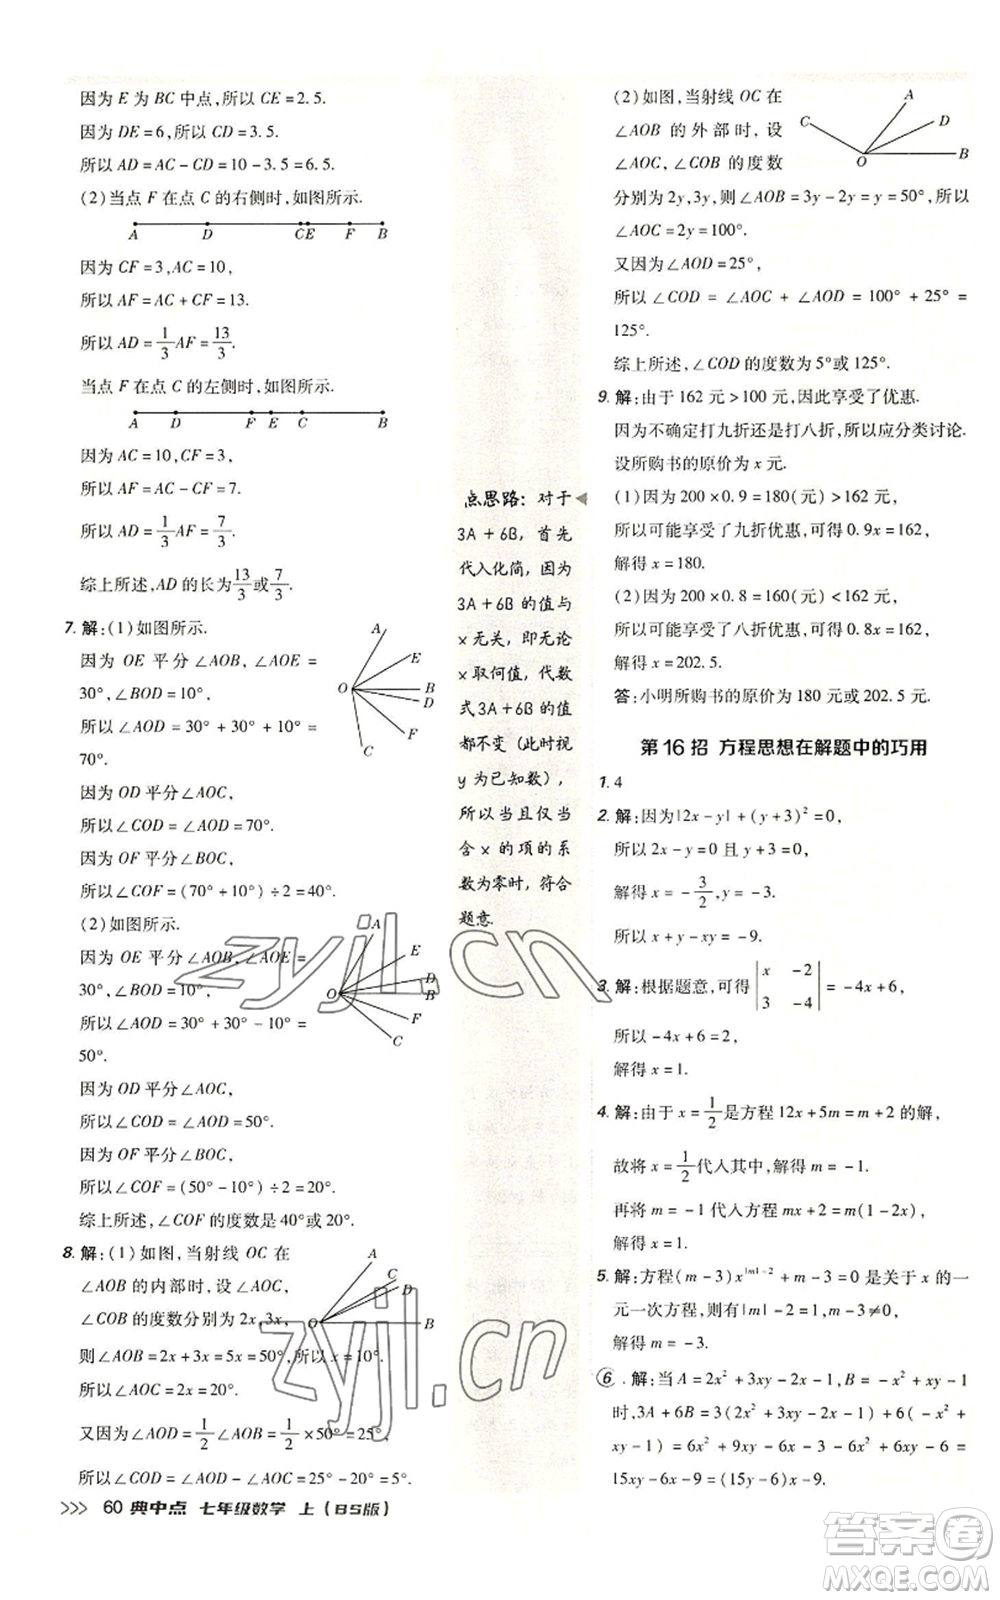 因为 E 为 BC 中点,所以 CE=2.5.
因为 DE=6,所以 CD=3.5.
所以 AD=AC-CD=10-3.5=6.5.
(2)当点 F 在点 C 的右侧时,如图所示.
A D CE F B
因为 CF=3,AC=10,
所以 AF=AC+CF=13.
所以 AD=1/3AF=13/3.
当点 F 在点 C 的左侧时,如图所示.
A D F E C B
因为 AC=10,CF=3,
所以 AF=AC-CF=7.
所以 AD=1/3AF=7/3.
综上所述,AD 的长为13/3或7/3.
7. 解:(1)如图所示.
因为 OE 平分∠AOB,∠AOE=
30°,∠BOD=10°,
所以∠AOD=30°+30°+10°=
70°.
A E O B D F C
因为 OD 平分∠AOC,
所以∠COD=∠AOD=70°.
因为 OF 平分∠BOC,
所以∠COF=(70°+10°)÷2=40°.
(2)如图所示.
因为 OE 平分∠AOB,∠AOE=
30°,∠BOD=10°,
所以∠AOD=30°+30°-10°=
50°.
A E D B O F C
因为 OD 平分∠AOC,
所以∠COD=∠AOD=50°.
因为 OF 平分∠BOC,
所以∠COF=(50°-10°)÷2=20°.
综上所述,∠COF 的度数是40°或20°.
8. 解:(1)如图,当射线 OC 在
∠AOB 的内部时,设∠AOC,
∠COB 的度数分别为2x,3x,
则∠AOB=2x+3x=5x=50°,所以 x=10°.
A C D O B
所以∠AOC=2x=20°.
又因为∠AOD=1/2∠AOB=1/2×50°=25°,
所以∠COD=∠AOD-∠AOC=25°-20°=5°.
>>> 60 典中点 七年级数学 上(BS版)
点思路:对于
3A+6B,首先
代入化简,因为
3A+6B的值与
x无关,即无论
x取何值,代数
式3A+6B的值
都不变(此时视
y为已知数),
所以当且仅当
含x的项的系
数为零时,符合
题意.
(2)如图,当射线 OC 在
∠AOB 的外部时,设
∠AOC,∠COB 的度数
分别为 2y,3y,则∠AOB=3y-2y=y=50°,所以
∠AOC=2y=100°.
A D C O B
又因为∠AOD=25°,
所以∠COD=∠AOC+∠AOD=100°+25°=
125°.
综上所述,∠COD 的度数为5°或125°.
9. 解:由于 162 元>100 元,因此享受了优惠.
因为不确定打九折还是打八折,所以应分类讨论.
设所购书的原价为 x 元.
(1)因为 200×0.9=180(元)>162 元,
所以可能享受了九折优惠,可得 0.9x=162,
解得 x=180.
(2)因为 200×0.8=160(元)<162 元,
所以可能享受了八折优惠,可得 0.8x=162,
解得 x=202.5.
答:小明所购书的原价为 180 元或 202.5 元.
第16招 方程思想在解题中的巧用
1. 4
2. 解:因为|2x-y|+(y+3)²=0,
所以 2x-y=0 且 y+3=0,
解得 x=-3/2,y=-3.
所以 x+y-xy=-9.
3. 解:根据题意,可得|x -2; 3 -4|=-4x+6,
所以 -4x+6=2,
解得 x=1.
4. 解:由于 x=1/2是方程 12x+5m=m+2 的解,
故将 x=1/2代入其中,解得 m=-1.
再将 m=-1 代入方程 mx+2=1 中,
解得 x=1.
5. 解:方程(m-3)x^(|m|-2)+m-3=0 是关于 x 的一
元一次方程,则有|m|-2=1,m-3≠0,
解得 m=-3.
6. 解:当 A=2x²+3xy-2x-1,B=-x²+xy-1
时,3A+6B=3(2x²+3xy-2x-1)+6(-x²+
xy-1)=6x²+9xy-6x-3-6x²+6xy-6=
15xy-6x-9=(15y-6)x-9.
zyjl.cn
zyjl.cn
答案圈
MXQE.COM